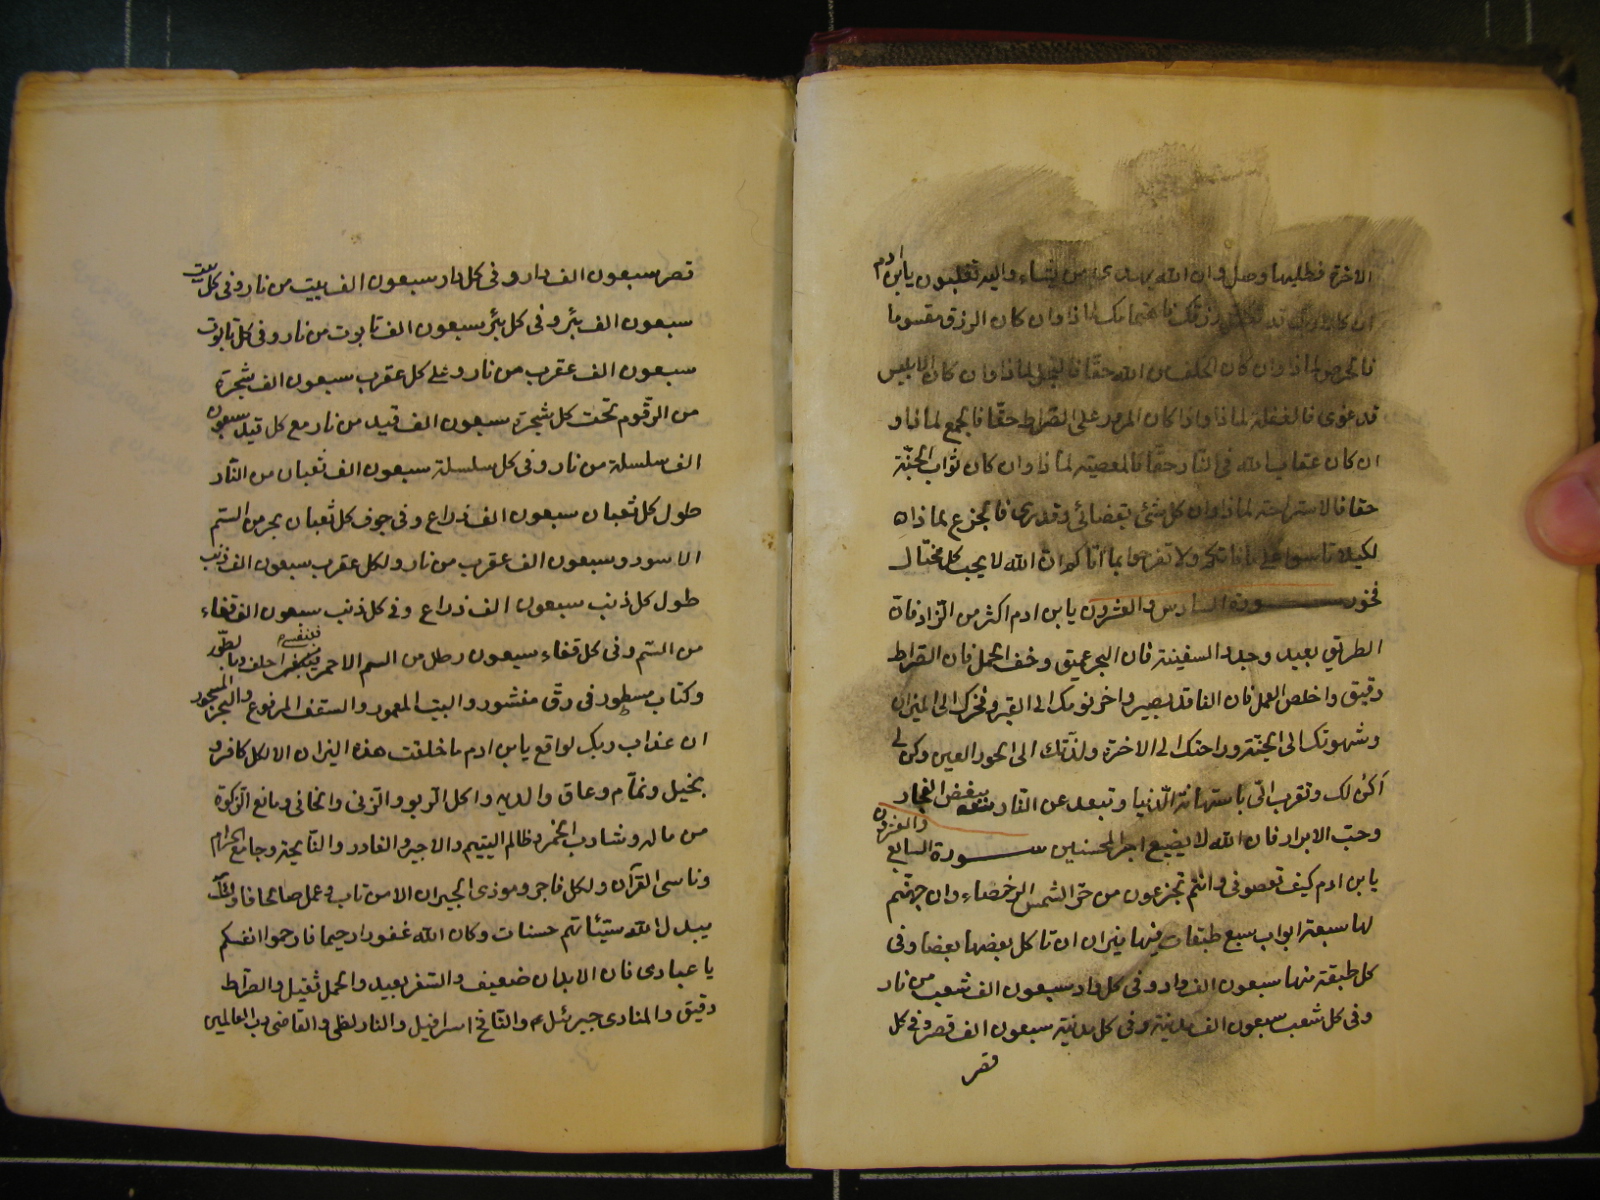 الاخرة فطلبها وصل وان الله يهدى من يشاء واليه تقلبون يابن ادم
ان كان الله قد تكفل رزقك فاهتمامك لماذا وان كان الرزق مقسوما
فالحرص لماذا وان كان الخلف من الله حقا فالبخل لماذا وان كان الابليس
قد عوى فالغفلة لماذا واذا كان المرور على الصراط حقا فالجمع لماذا و
ان كان عقاب الله فى النار حقا فالمعصية لماذا وان كان ثواب الجنة
حقا فالاستراحة لماذا وان كل شئ بقضائى وقدرى فالجزع لماذا ه
لكيلا تاسوا على ما فاتكم ولا تفرحوا بما اتاكم وان الله لا يحب كل مختال
فخور سورة السادس والعشرون يابن ادم اكثر من الزاد فان
الطريق بعيد وجدد السفينة فان البحر عميق وخف الحمل فان الصراط
دقيق واخلص العمل فان الناقد بصير واخر نومك الى القبر وفخرك الى الميزان
وشهوتك الى الجنة وراحتك الى الاخرة ولذتك الى الحور العين وكن لى
اكن لك وتقرب الى باستهانة الدنيا وتبعد عن النار ببغض الفجار
وحب الابرار فان الله لا يضيع اجر المحسنين سورة السابع والعشرون
يابن ادم كيف تعصونى وانتم تجزعون من حر الشمس الرخصاء وان جهنم
لها سبعة ابواب سبع طبقات فيها نيران ان تاكل بعضها بعضا وفى
كل طبقة منها سبعون الف واد وفى كل واد سبعون الف شعب من نار
وفى كل شعب سبعون الف مدينة وفى كل مدينة سبعون الف قصر وفى كل
قصر
قصر سبعون الف دار وفى كل دار سبعون الف بيت من نار وفى كل بيت
سبعون الف بئر وفى كل بئر سبعون الف تابوت من نار وفى كل تابوت
سبعون الف عقرب من نار وعلى كل عقرب سبعون الف شجرة
من الزقوم تحت كل شجرة سبعون الف قيد من نار مع كل قيد سبعون
الف سلسلة من نار وفى كل سلسلة سبعون الف ثعبان من النار
طول كل ثعبان سبعون الف ذراع وفى جوف كل ثعبان بحر من السم
الاسود وسبعون الف عقرب من نار ولكل عقرب سبعون الف ذنب
طول كل ذنب سبعون الف ذراع وفى كل ذنب سبعون الف قفاء
من السم وفى كل قفاء سبعون رطل من السم الاحمر فبنفسى احلف وبالطور
وكتاب مسطور فى رق منشور والبيت المعمور والسقف المرفوع والبحر المسجور
ان عذاب ربك لواقع يابن ادم ما خلقت هذه النيران الا لكل كافر و
بخيل ونمام وعاق والديه واكل الربو والزنى والخانى ومانع الزكوة
من ماله وشارب الخمر وظالم اليتيم والاجير والغادر والنايحة وجامع الحرام
وناسى القرآن ولكل فاجر وموذى الجيران الا من تاب وعمل صالحا فاولئك
يبدل الله سيئاتهم حسنات وكان الله غفورا رحيما فارحموا انفسكم
يا عبادى فان الابدان ضعيف والسفر بعيد والحمل ثقيل والصراط
دقيق والمنادى جبرئيل والنافخ اسرافيل والنار لظى والقاضى رب العالمين